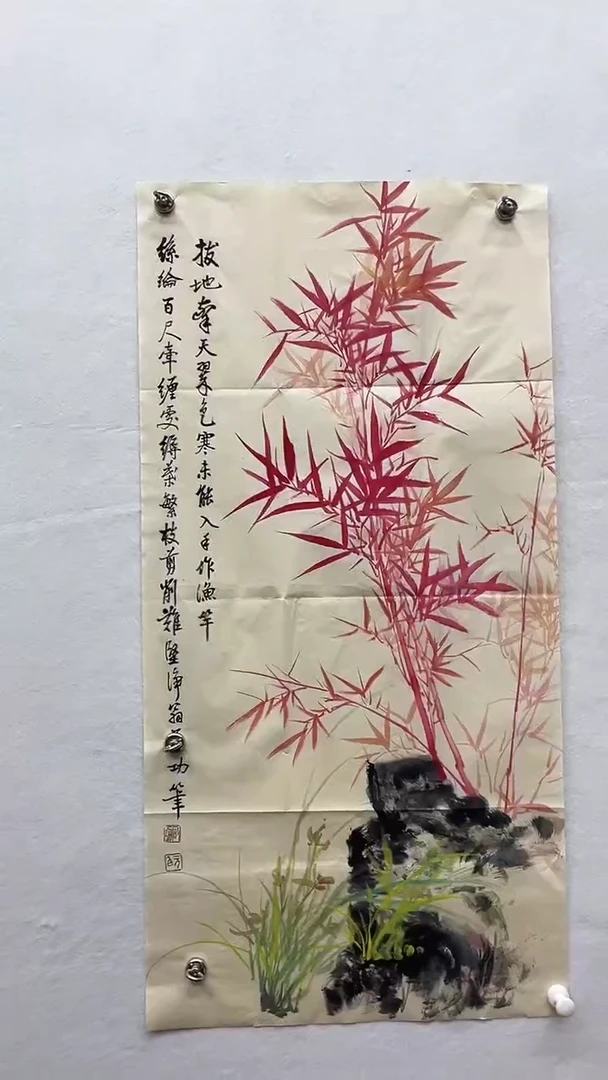 拔地參天翠色寒未能入手作漁竿
絲綸百尺牽纏處縟葉繁枝剪削難堅淨翁功筆